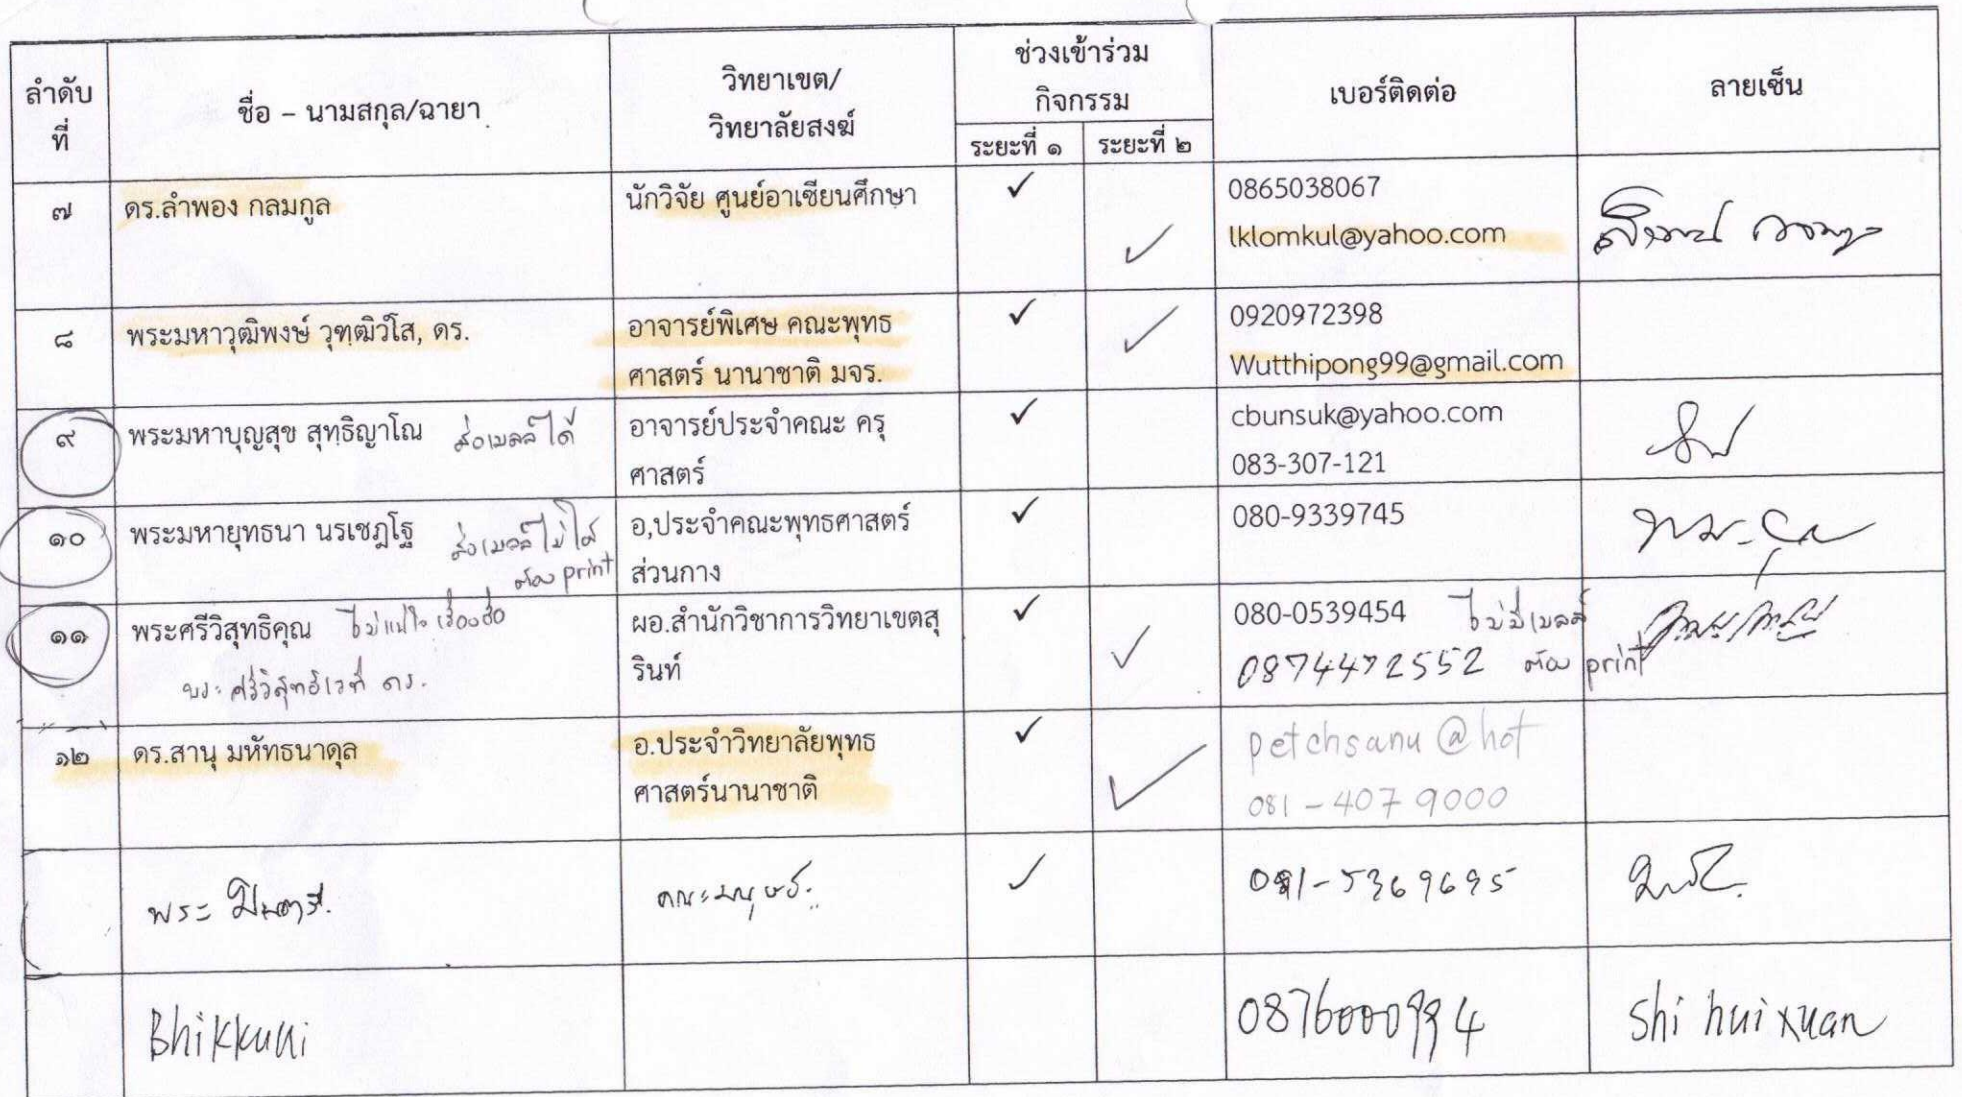 ลำดับ
ที่
ชื่อ – นามสกุล/ฉายา
วิทยาเขต/
วิทยาลัยสงฆ์
ช่วงเข้าร่วม
กิจกรรม
ระยะที่ ๑
ระยะที่ ๒
เบอร์ติดต่อ
ลายเซ็น
๗
ดร.ลำพอง กลมกูล
นักวิจัย ศูนย์อาเซียนศึกษา
✓
✓
0865038067
lklomkul@yahoo.com
๘
พระมหาวุฒิพงษ์ วุฑฺฒิวํโส, ดร.
อาจารย์พิเศษ คณะพุทธ
ศาสตร์ นานาชาติ มจร.
✓
✓
0920972398
Wutthipong99@gmail.com
๙
พระมหาบุญสุข สุทฺธิญาโณ
ส่งเมลล์ได้
อาจารย์ประจำคณะ ครุ
ศาสตร์
✓
cbunsuk@yahoo.com
083-307-121
๑๐
พระมหายุทธนา นรเชฏฺโฐ
ส่งเมลล์ไม่ได้
ต้อง print
อ,ประจำคณะพุทธศาสตร์
ส่วนกาง
✓
080-9339745
๑๑
พระศรีวิสุทธิคุณ
ไม่แน่ใจเรื่องชื่อ
พระศรีวิสุทธิเวที ดร.
ผอ.สำนักวิชาการวิทยาเขตสุ
รินท์
✓
✓
080-0539454
ไม่มีเมลล์
0874472552
ต้อง print
๑๒
ดร.สานุ มหัทธนาดุล
อ.ประจำวิทยาลัยพุทธ
ศาสตร์นานาชาติ
✓
✓
petchsanu@hot
081-407 9000
พระ
คณะมนุษย์.
✓
081-5369695
Bhikkuni
0876000994
Shi huixuan